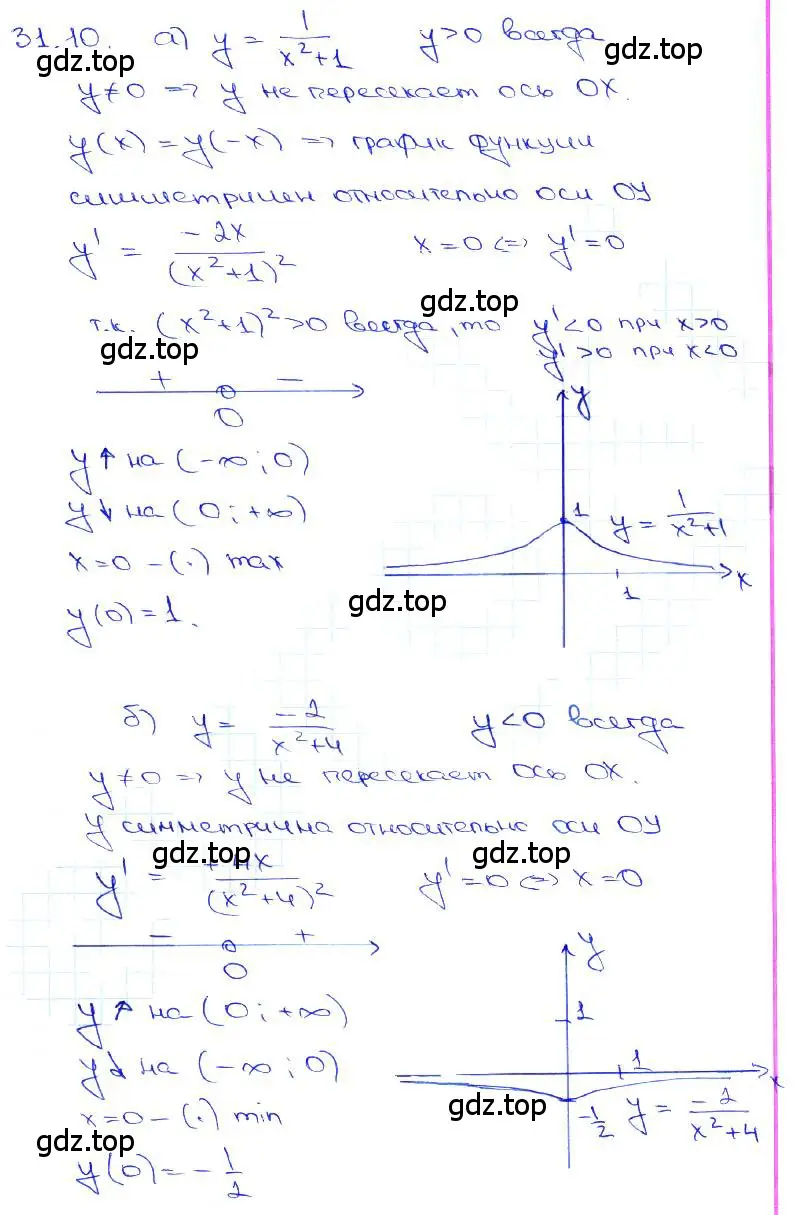 31.10. а) y = 1/(x²+1)    y>0 всегда
gdz.top    gdz.top
y≠0 => y не пересекает ось OX.
y(x) = y(-x) => график функции
симметричен относительно оси OY
y' = -2x/(x²+1)²    x=0 <=> y'=0
gdz.top
т.к. (x²+1)²>0 всегда, то y'<0 при x>0
y'>0 при x<0
gdz.top
+ −
0
y↑ на (-∞; 0)
y↓ на (0; +∞)
x=0 – (·) max
y(0)=1.
y
1 y = 1/(x²+1)
x
1
gdz.top
б) y = -2/(x²+4)    y<0 всегда
y≠0 => y не пересекает ось OX.
y симметрична относительно оси OY
gdz.top    gdz.top
y' = +4x/(x²+4)²    y'=0 <=> x=0
− +
0
y↑ на (0; +∞)
y↓ на (-∞; 0)
x=0 – (·) min
gdz.top
y(0) = -1/2
y
1
1
x
-1/2 y = -2/(x²+4)
gdz.top